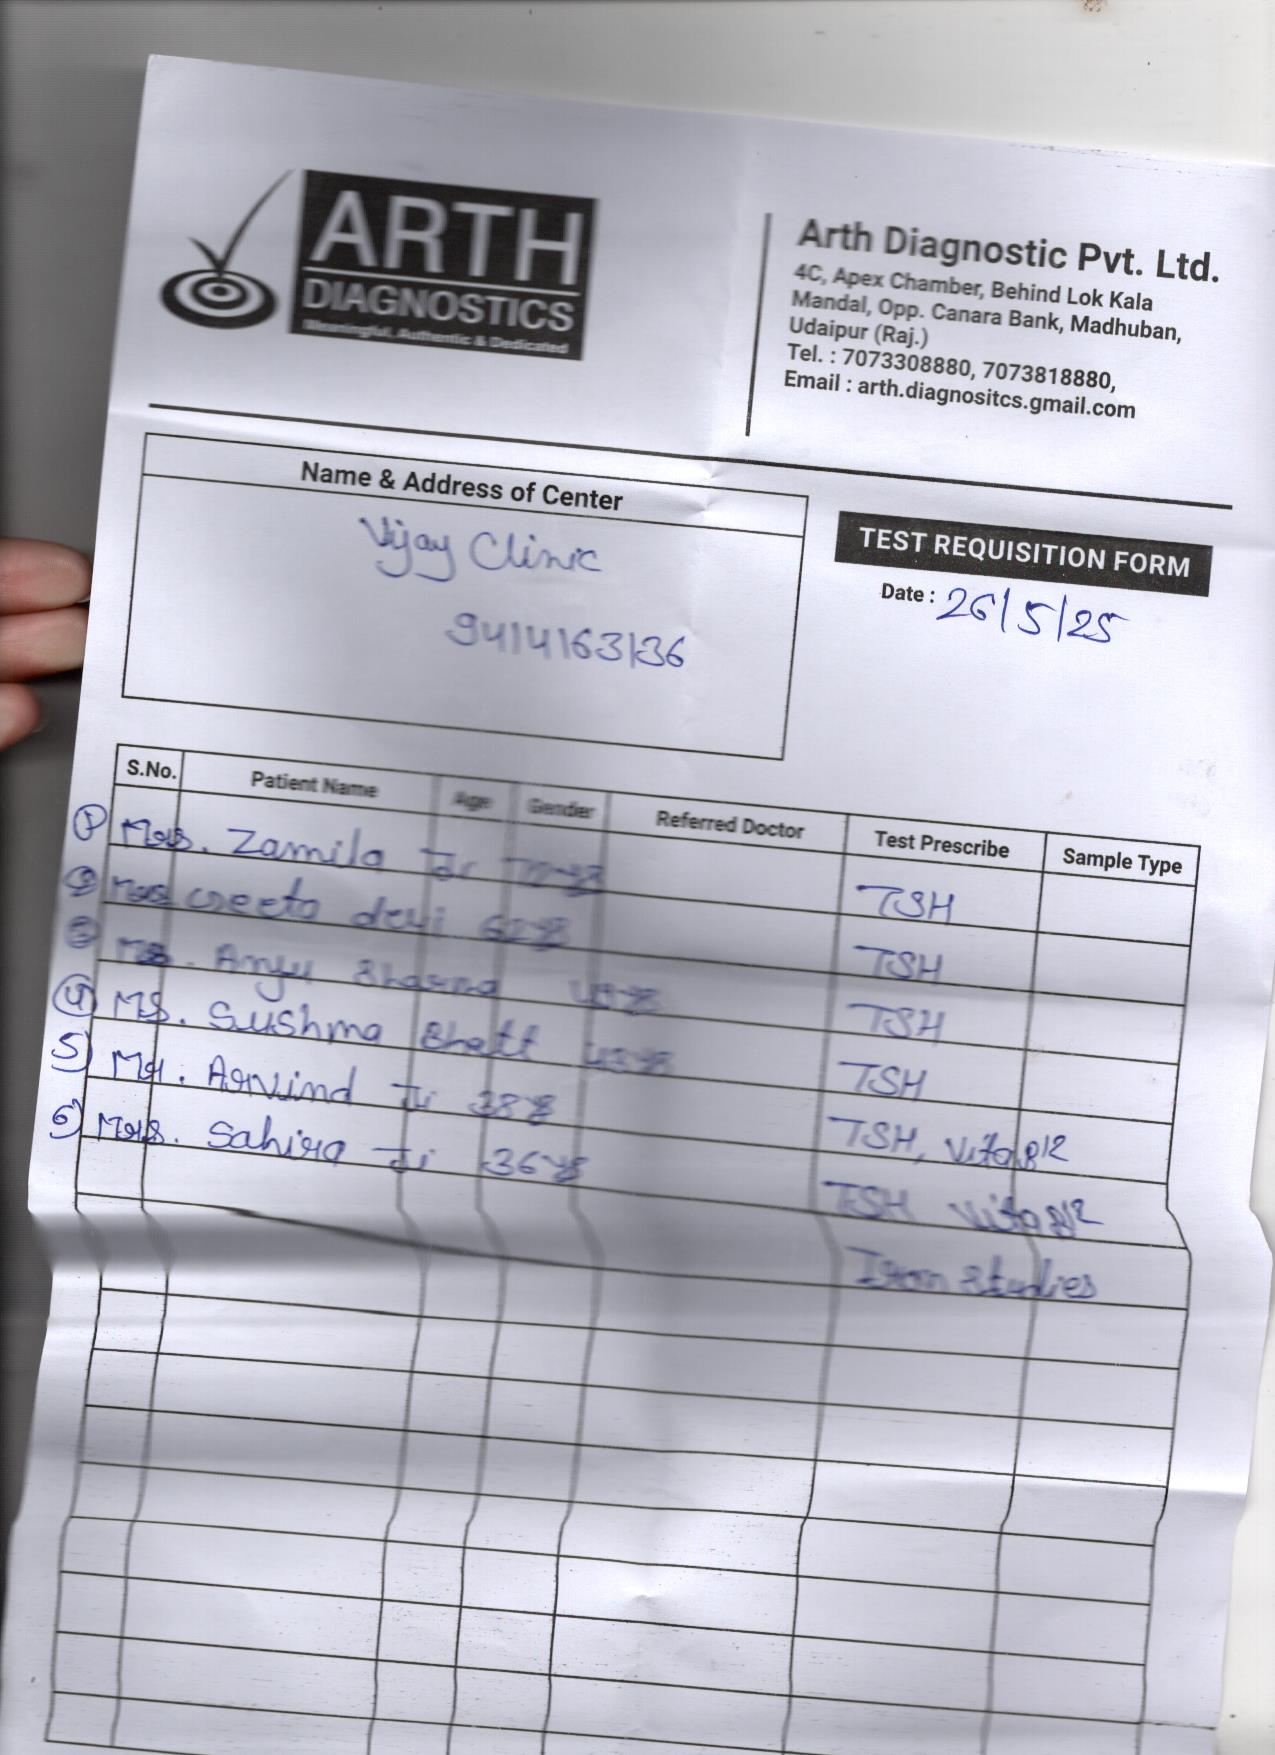 ARTH
DIAGNOSTICS
Meaningful, Authentic & Dedicated
Arth Diagnostic Pvt. Ltd.
4C, Apex Chamber, Behind Lok Kala
Mandal, Opp. Canara Bank, Madhuban,
Udaipur (Raj.)
Tel. : 7073308880, 7073818880,
Email : arth.diagnositcs.gmail.com
Name & Address of Center
Vijay Clinic
9414163136
TEST REQUISITION FORM
Date : 26/5/25
S.No. Patient Name Age Gender Referred Doctor Test Prescribe Sample Type
1 Mrs. Zamila Ji TSH
2 Mrs devi 62 TSH
3 Anju Sharma TSH
4 Ms. Sushma Bhatt TSH
5) Mr. Arvind Ji 38 TSH, Vita B12
6) Mrs. Sahira Ji 36 TSH Vita B12
Iron Studies